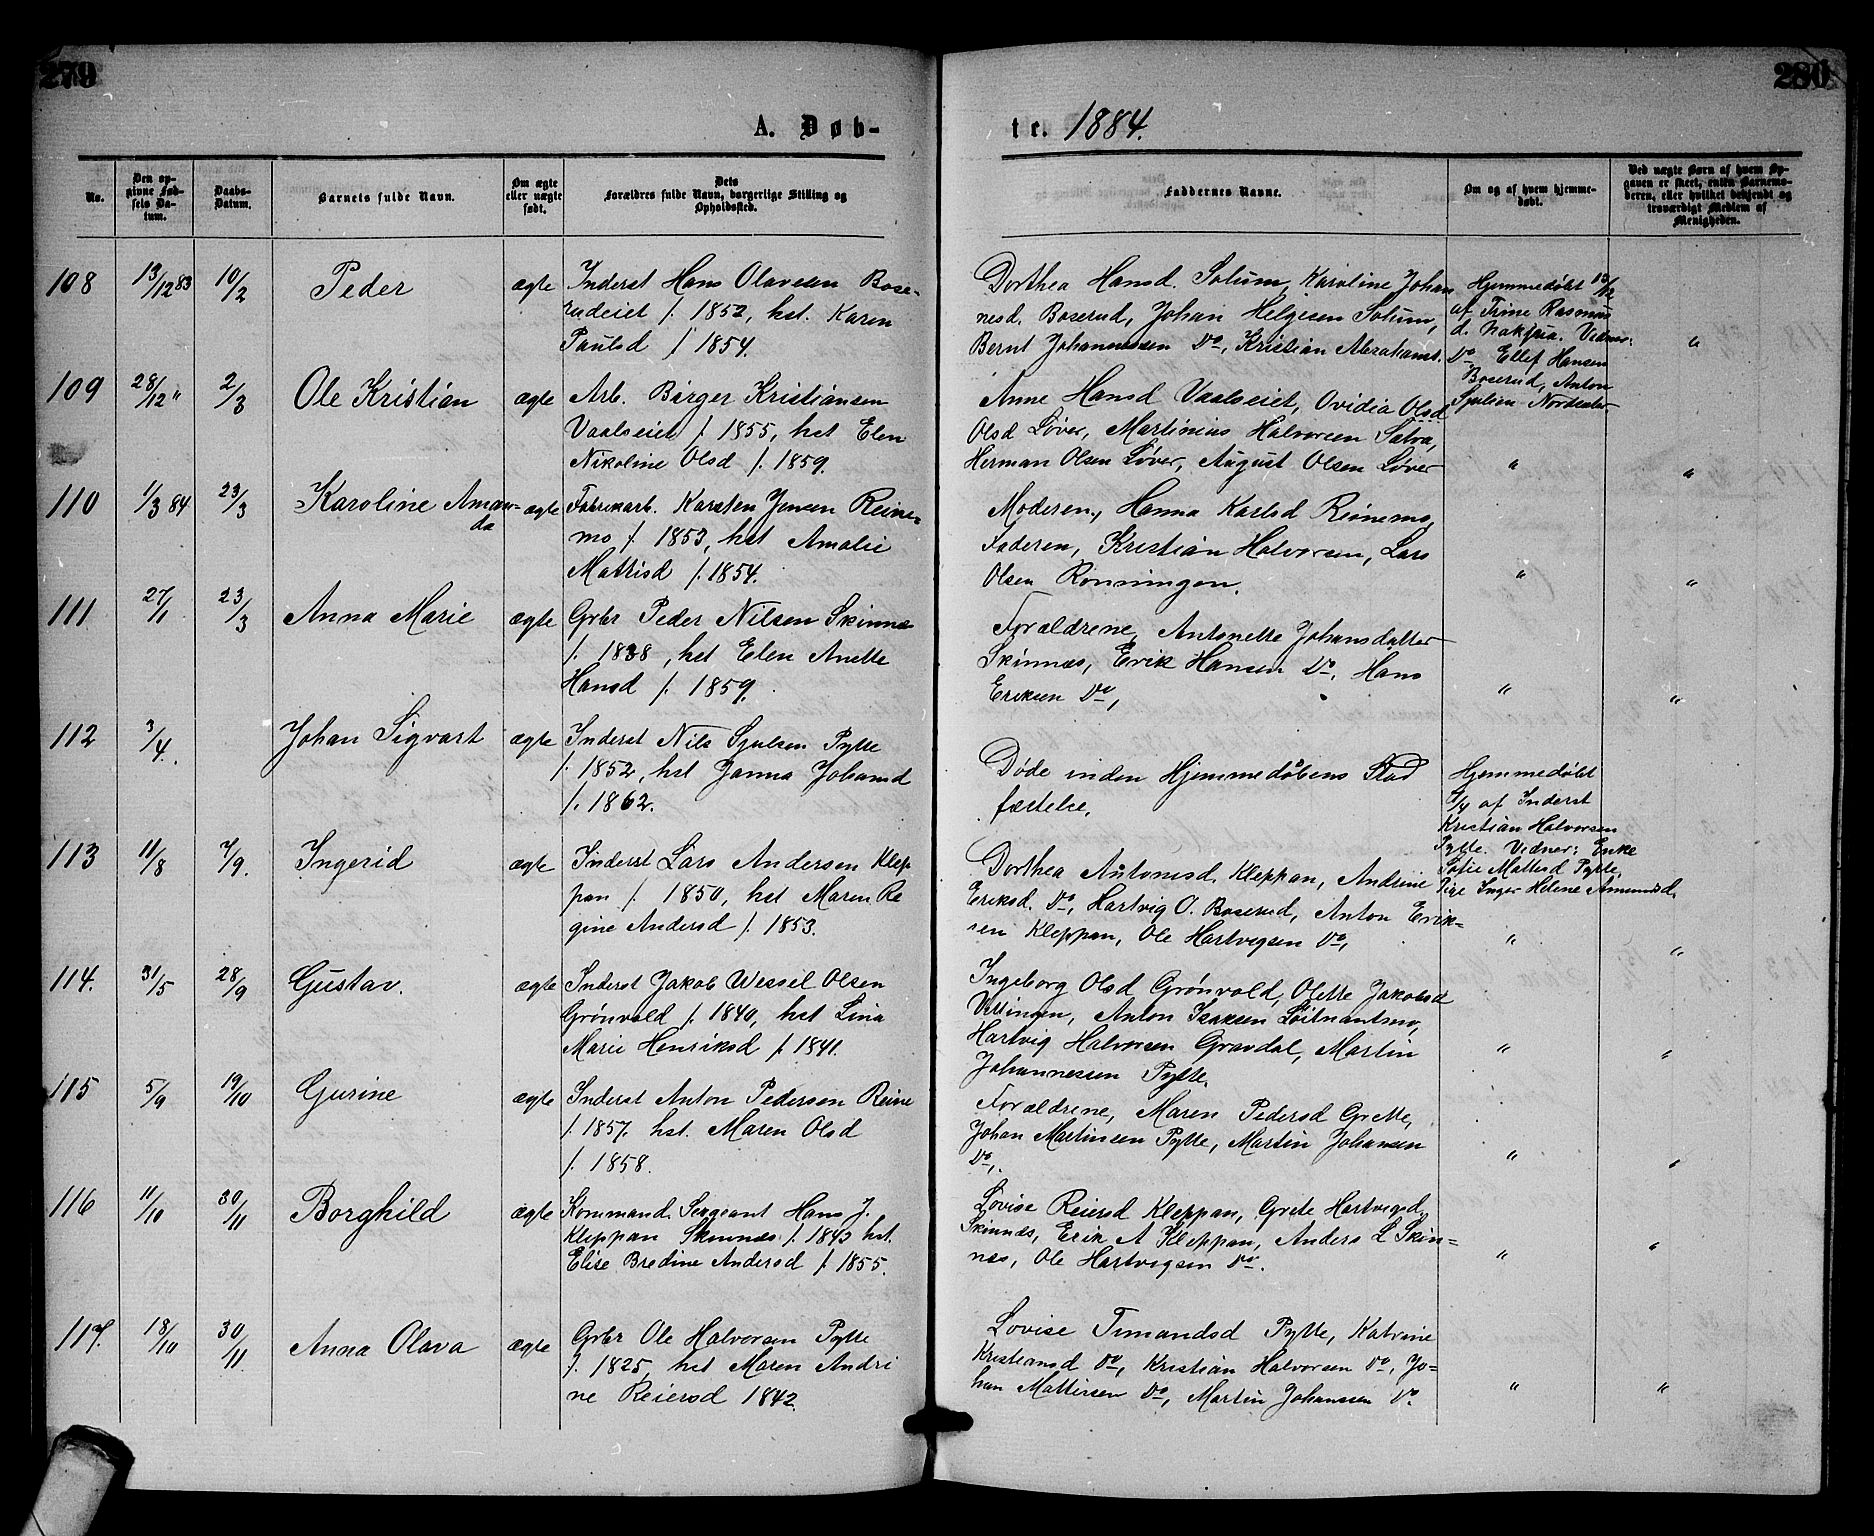 279
280
A. Døb-
te. 1884.
No.
Den op-
givne Fød-
sels Da-
tum.
Daabs-
Datum.
Barnets fulde Navn.
Om ægte
eller uægte
født.
Dets
Forældres fulde Navn, borgerlige Stilling og
Opholdssted.
Faddernes Navne.
Om og af hvem hjemme-
døbt.
Ved uægte Børn af hvem Op-
gaven er skeet, enten Barnemo-
deren, eller hvilket bekjendt og
troværdigt Medlem af
Menigheden.
108 13/12 83 10/2 Peder ægte Inderst Hans Olavesen Bose-
rudeiet f. 1852, hst. Karen
Paulsd f 1854.
Dorthea Hansd. Solum, Karoline Johan
nesd. Boserud, Johan Helgesen Solum,
Bernt Johannessen Do, Kristian Abrahams.
Hjemmedøbt 13/12
af Trine Rasmus
d. Nakjua. Vidner:
Do Ellef Hansen
Boserud, Anton
Julien Nordsater
"
109 28/12 " 2/3 Ole Kristian ægte Arb. Birger Kristiansen
Vaalseiet f. 1855, hst Elen
Nikoline Olsd f. 1859.
Anne Hansd Vaalseiet, Ovidia Olsd
Olsd Løver, Martinius Halvorsen Sølva,
Herman Olsen Løver, August Olsen Løver
" "
110 1/3 84 23/3 Karoline Aman-
da ægte Fabrikarb. Karsten Jensen Reine-
mo f. 1853, hst Amalie
Mathisd f. 1854.
Moderen, Hanna Karlsd Reinemo,
Faderen, Kristian Halvorsen, Lars
Olsen Rønningen.
" "
111 27/1 23/3 Anna Marie ægte Grbr Peder Nilsen Skinnes
f. 1838, hst Elen Anette
Hansd f. 1859.
Forældrene, Antonette Johansdatter
Skinnæs, Erik Hansen Do, Hans
Eriksen Do,
" "
112 3/4. Johan Sigvart ægte Inderst Nils Julsen Pytte
f. 1852, hst Janna Johansd
f. 1862.
Døde inden Hjemmedåbens Stad
fæstelse.
Hjemmedøbt
4/4 af Inderst
Kristian Halvorsen
Pytte. Vidner: Enke
Sofie Mattisd Pytte,
Pige Inger Helene Amundsd.
113 11/8 7/9. Ingerid ægte Inderst Lars Andersen Klep
pan f. 1850, hst Maren Re
gine Andersd f. 1853.
Dorthea Antonsd. Kleppan, Andrine
Eriksd. Do, Hartvig O. Boserud, Anton Erik-
sen Kleppan, Ole Hartvigsen Do,
" "
114. 31/5 28/9 Gustav. ægte Inderst Jakob Wessel Olsen
Grønvold f. 1840, hst Lina
Marie Henriksd f. 1841.
Ingeborg Olsd Grønvold, Olette Jakobsd
Vettingen, Anton Isaksen Løitnantsmo,
Hartvig Halvorsen Gravdal, Martin
Johannessen Pytte.
" "
115 5/9 19/10 Gurine ægte Inderst Anton Pedersen Reine
f. 1857. hst. Maren Olsd
f. 1858.
Forældrene, Maren Pedersd Grette,
Johan Martinsen Pytte, Martin Johansen
Do,.
" "
116 11/10 30/11 Borghild ægte Kommand. Sergeant Hans J.
Kleppan Skinnæs f. 1843 hst.
Elise Bredine Andersd f. 1855.
Lovise Reiersd Kleppan, Grete Hartvigsd
Skinnæs, Erik A Kleppan, Anders L Skin-
næs, Ole Hartvigsen Do.
" "
117. 18/10 30/11. Anna Olava ægte Grbr Ole Halvorsen Pytte
f. 1825, hst Maren Andri
ne Reiersd 1842.
Lovise Timandsd Pytte, Katrine
Kristiansd Do, Kristian Halvorsen Do, Jo-
han Mattisen Do, Martin Johanssen Do
" "